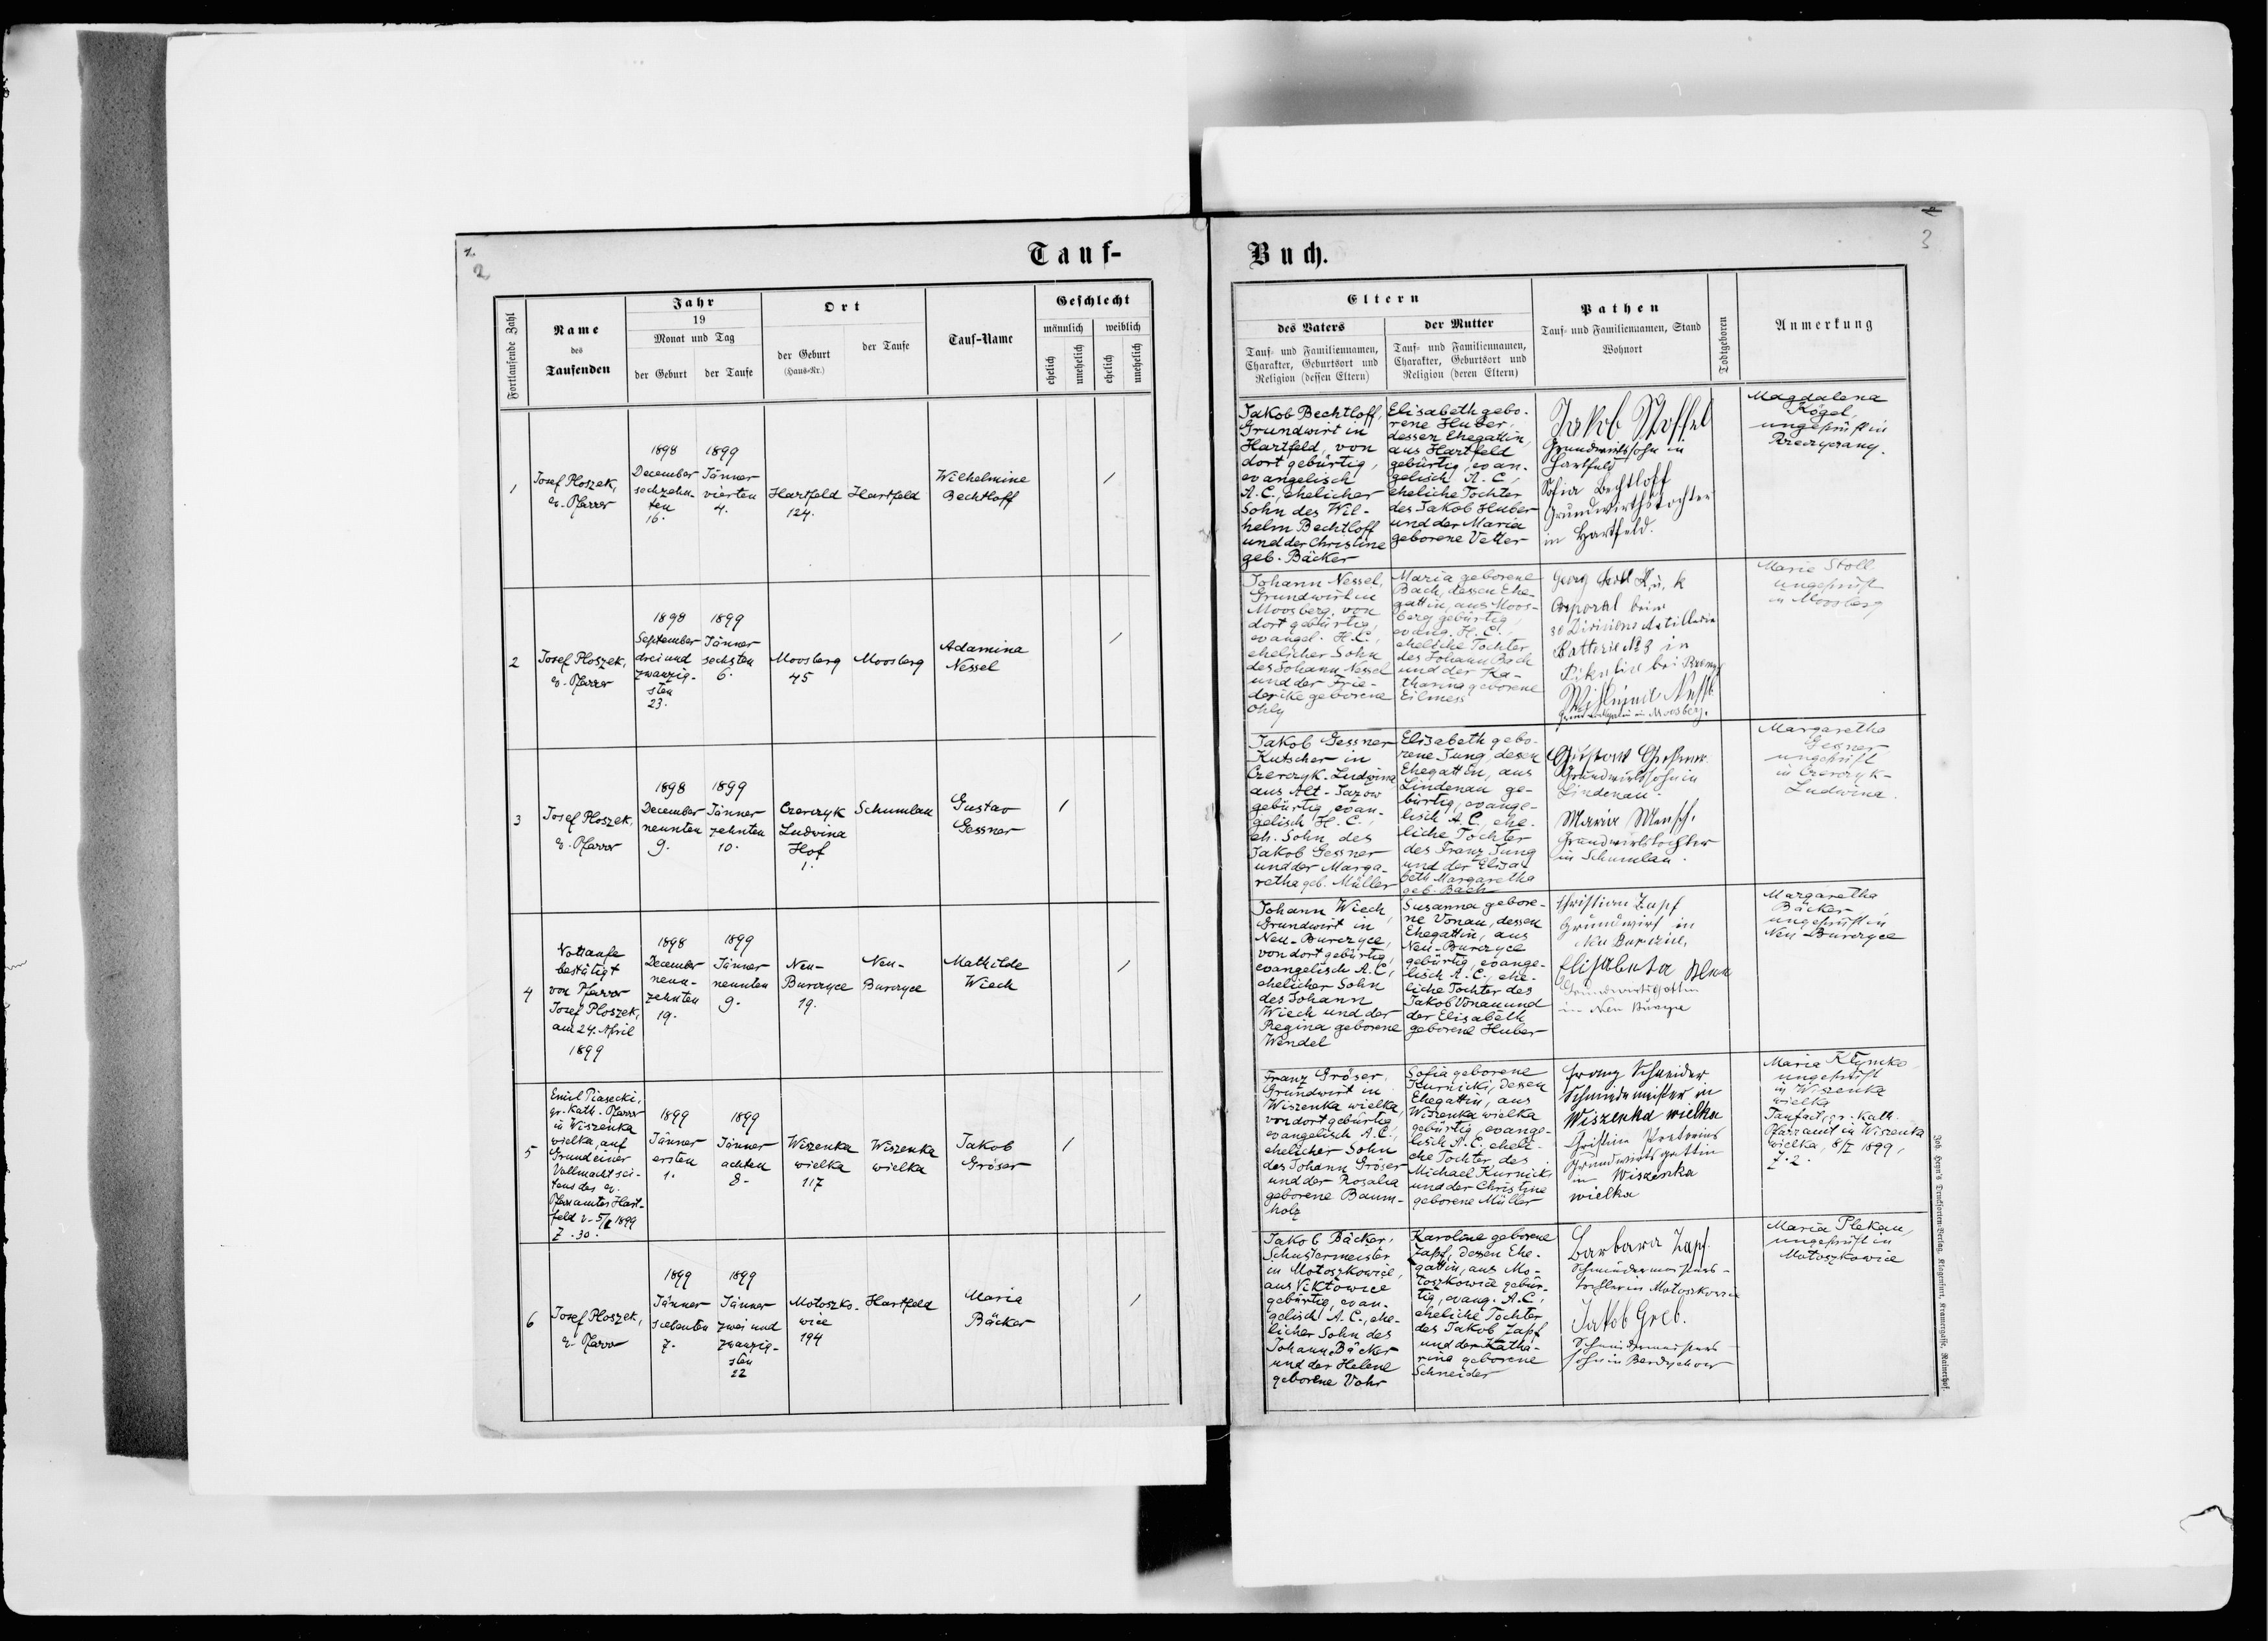 2
3
Tauf-
Buch.
Fortlaufende Zahl
Name
des
Taufenden
Jahr
19
Monat und Tag
der Geburt
der Taufe
Ort
der Geburt
(Haus-Nr.)
der Taufe
Tauf-Name
Geschlecht
männlich
weiblich
ehelich
unehelich
ehelich
unehelich
Eltern
des Vaters
Tauf- und Familiennamen,
Charakter, Geburtsort und
Religion (dessen Eltern)
der Mutter
Tauf- und Familiennamen,
Charakter, Geburtsort und
Religion (deren Eltern)
Pathen
Tauf- und Familiennamen, Stand
Wohnort
Todtgeboren
Anmerkung
1
Josef Ploszek,
ev. Pfarrer
1898
December
sechzehn-
ten
16.
1899
Jänner
vierten
4.
Hartfeld
124.
Hartfeld
Wilhelmine
Bechtloff
Jakob Bechtloff,
Grundwirt in
Hartfeld, von
dort gebürtig,
evangelisch
A. C., ehelicher
Sohn des Wil-
helm Bechtloff
und der Christine
geb. Bäcker
Elisabeth gebo-
rene Huber,
dessen Ehegattin,
aus Hartfeld
gebürtig, evan-
gelisch A. C.,
eheliche Tochter
des Jakob Huber
und der Maria
geborene Vetter
Jakob Stoffel
Grundwirtssohn in
Hartfeld
Sofia Bechtloff
Grundwirthstochter
in Hartfeld.
Magdalena
Kögel,
ungeprüft in
2
Josef Ploszek,
ev. Pfarrer
1898
September
drei und
zwanzig-
sten
23.
1899
Jänner
sechsten
6.
Moosberg
45
Moosberg
Adamina
Nessel
Johann Nessel,
Grundwirt in
Moosberg, von
dort gebürtig,
evangel. H. C.,
ehelicher Sohn
des Johann Nessel
und der Frie-
derike geborene
Ohly
Maria geborene
Bach, dessen Ehe-
gattin, aus Moos-
berg gebürtig,
evang. H. C.,
eheliche Tochter
des Johann Bach
und der Ka-
tharina geborene
Eilmess
Georg k. u. k
Corporal beim
Batterie No 3 in
bei
in Moosberg.
Marie Stoll
ungeprüft
in Moosberg
3
Josef Ploszek,
ev. Pfarrer
1898
December
neunten
9.
1899
Jänner
zehnten
10.
Czerczyk
Ludwina
Hof
1.
Schumlau
Gustav
Gessner
Jakob Gessner
Kutscher in
Czerczyk-Ludwina,
aus Alt-Jazow
gebürtig, evan-
gelisch H. C.,
eh. Sohn des
Jakob Gessner
und der Marga-
retha geb. Müller
Elisabeth gebo-
rene Jung, dessen
Ehegattin, aus
Lindenau ge-
bürtig, evange-
lisch A. C., ehe-
liche Tochter
des Franz Jung
und der Elisa-
beth Margaretha
geb. Bach
Gustav Gessner
Grundwirtssohn in
Lindenau.
Maria Mensch,
Grundwirtstochter
in Schumlau.
Margaretha
Gessner
ungeprüft
in Czerczyk-
Ludwina.
4
Nottaufe
bestätigt
von Pfarrer
Josef Ploszek,
am 24. April
1899
1898
December
neun-
zehnten
19.
1899
Jänner
neunten
9.
Neu-
Burczyce
19.
Neu-
Burczyce
Mathilde
Wiech
Johann Wiech,
Grundwirt in
Neu-Burczyce,
von dort gebürtig,
evangelisch A. C.,
ehelicher Sohn
des Johann
Wiech und der
Regina geborene
Wendel
Susanna gebore-
ne Vonau, dessen
Ehegattin, aus
Neu-Burczyce
gebürtig, evange-
lisch A. C., ehe-
liche Tochter des
Jakob Vonau und
der Elisabeth
geborene Huber
Christian Zapf
Grundwirt in
Margaretha
Bäcker
ungeprüft in
Neu-Burczyce
5
Emil Piasecki,
gr.-kath. Pfarrer
in Wiszenka
wielka, auf
Grund einer
Vollmacht sei-
tens des ev.
Pfarramtes Hart-
feld v. 5/1 1899
Z. 30.
1899
Jänner
ersten
1.
1899
Jänner
achten
8.
Wiszenka
wielka
117
Wiszenka
wielka
Jakob
Gröser
Franz Gröser,
Grundwirt in
Wiszenka wielka,
von dort gebürtig,
evangelisch A. C.,
ehelicher Sohn
des Johann Gröser
und der Rosalia
geborene Baum-
holz
Sofia geborene
Kurnicki, dessen
Ehegattin, aus
Wiszenka wielka
gebürtig, evange-
lisch A. C., eheli-
che Tochter des
Michael Kurnicki
und der Christine
geborene Müller
Franz Schneider
Schmiedemeister in
Wiszenka wielka
Christine Pretorius
Grundwirtsgattin
in Wiszenka
wielka
Maria Klymko
ungeprüft
in Wiszenka
wielka
Taufact, gr.-kath.
Pfarramt in Wiszenka
wielka, 8/1 1899,
Z. 2.
6
Josef Ploszek,
ev. Pfarrer
1899
Jänner
siebenten
7.
1899
Jänner
zwei und
zwanzig-
sten
22
Motoszko-
wice
194
Hartfeld
Maria
Bäcker
Jakob Bäcker,
Schustermeister
in Motoszkowice,
aus Viktowice
gebürtig, evan-
gelisch A. C., ehe-
licher Sohn des
Johann Bäcker
und der Helene
geborene Vohr
Karoline geborene
Zapf, dessen Ehe-
gattin, aus Mo-
toszkowice gebür-
tig, evang. A. C.,
eheliche Tochter
des Jakob Zapf
und der Katha-
rina geborene
Schneider
Barbara Zapf
Schmiedemeisters-
tochter in Motoszkowice
Jakob Greb.
Schmiedemeisters
sohn in
Maria Plekan,
ungeprüft in
Motoszkowice
Joh. Heyn's Drucksorten-Verlag, Klagenfurt, Kramergasse, Rainerhof.